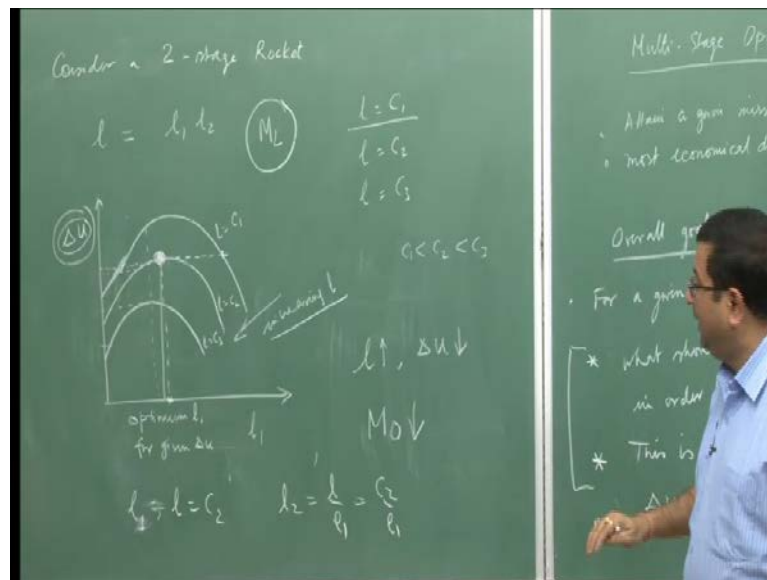 Consider a 2-stage Rocket
l = l₁ l₂
M_L
l = C₁
l = C₂
l = C₃
ΔU
l=C₁
l=C₂
l=C₃
increasing l
C₁ < C₂ < C₃
l↑, ΔU↓
M₀↓
optimum l₁
for given ΔU
l₁
l = C₂
l₂ = l/l₁ = C₂/l₁
Multi-Stage Op
Attain a given miss
most economical
Overall
For a given
* what
in order
* This is
ΔU